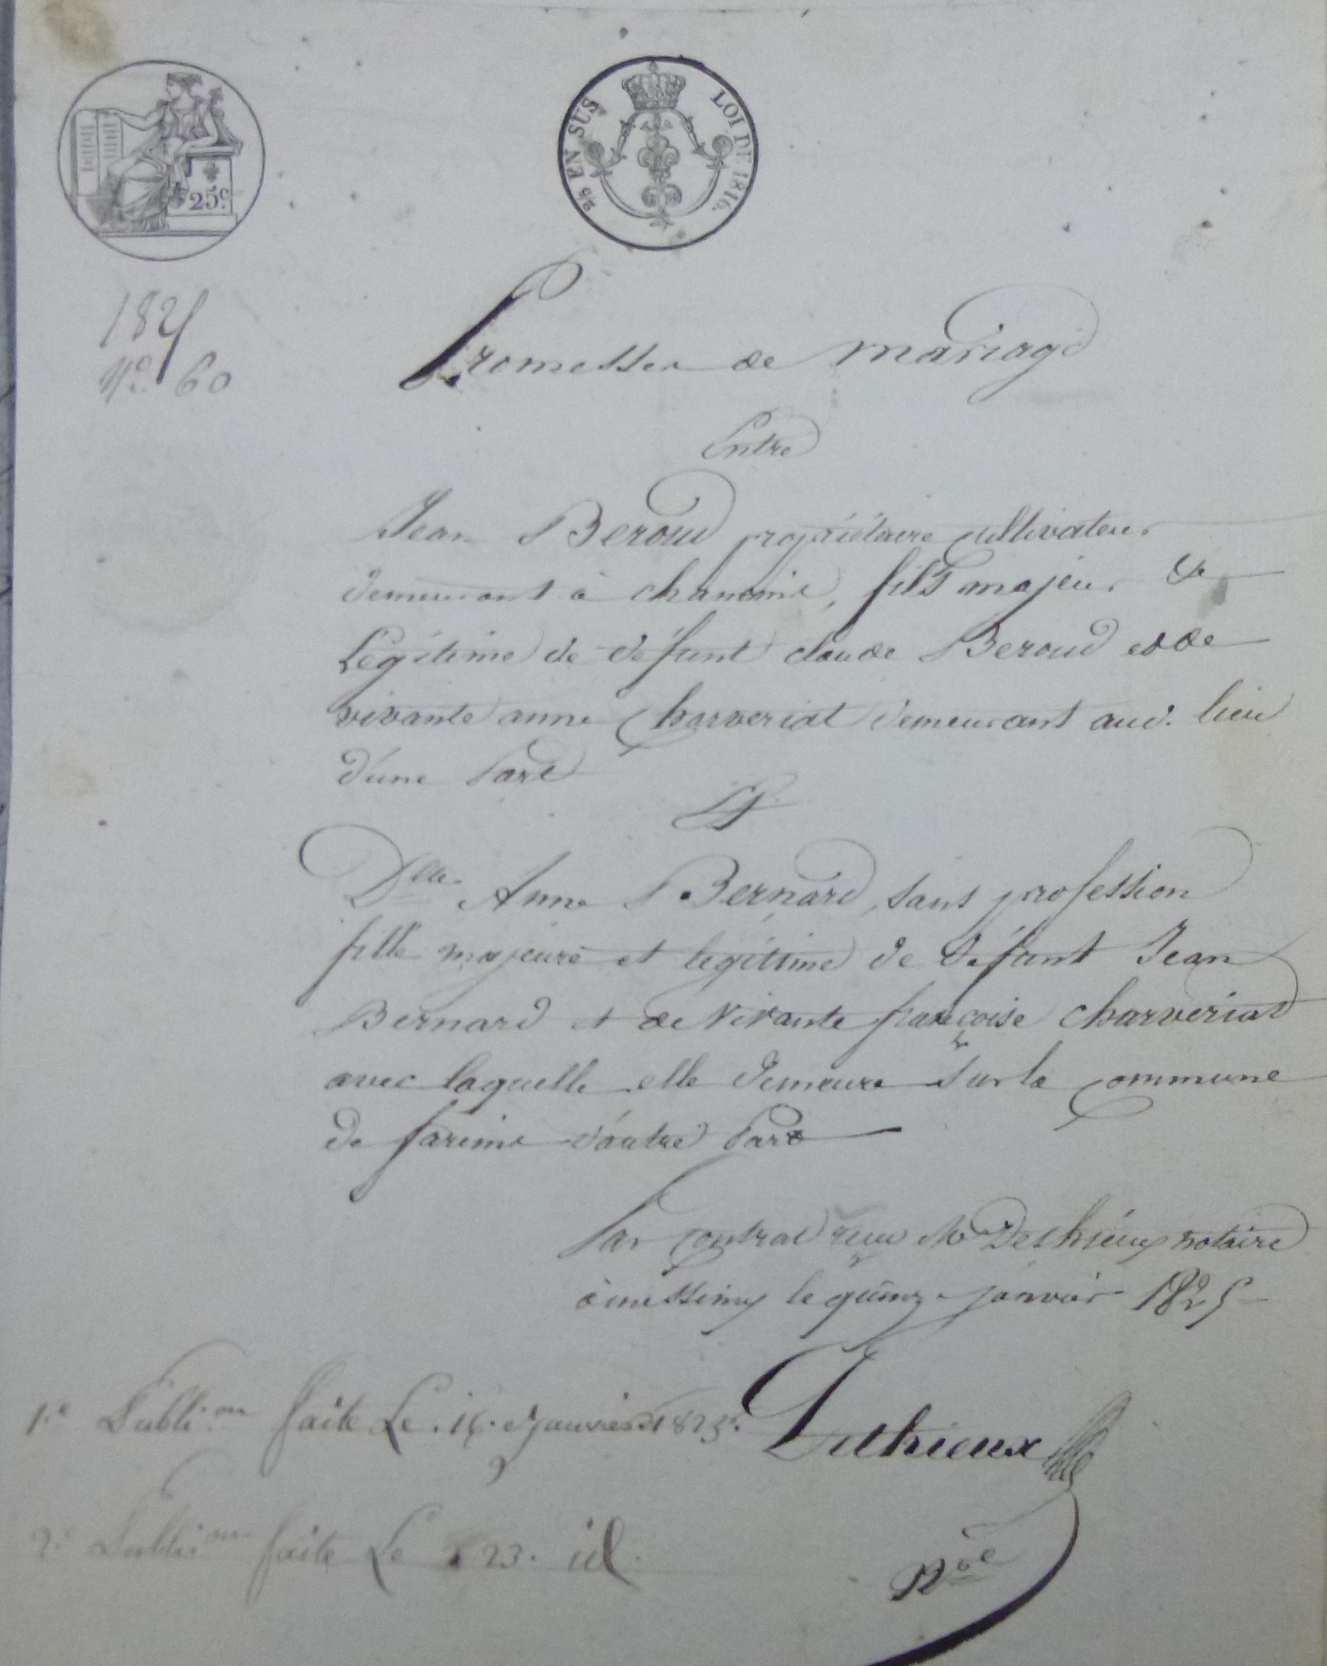 25 EN SUS LOI DE 1816.
25c.
1825
No. 60
Promesse de mariage
Entre
Jean Beroud propriétaire cultivateur
demeurant à , fils majeur &
Légitime de défunt claude Beroud et de
vivante anne Charveriat demeurant aud. lieu
d'une Part
Et
Dlle Anne Bernard, sans profession
fille majeure et legitime de défunt Jean
Bernard et de vivante françoise charveriat
avec laquelle elle demeure sur la Commune
de d'autre Part
Par Contrat reçu Me Dethieux notaire
à messimy le quinze janvier 1825
1re Publi.on faite Le 16 Janvier 1825.
Dethieux
2e Publi.on faite Le 23. id.
Nre